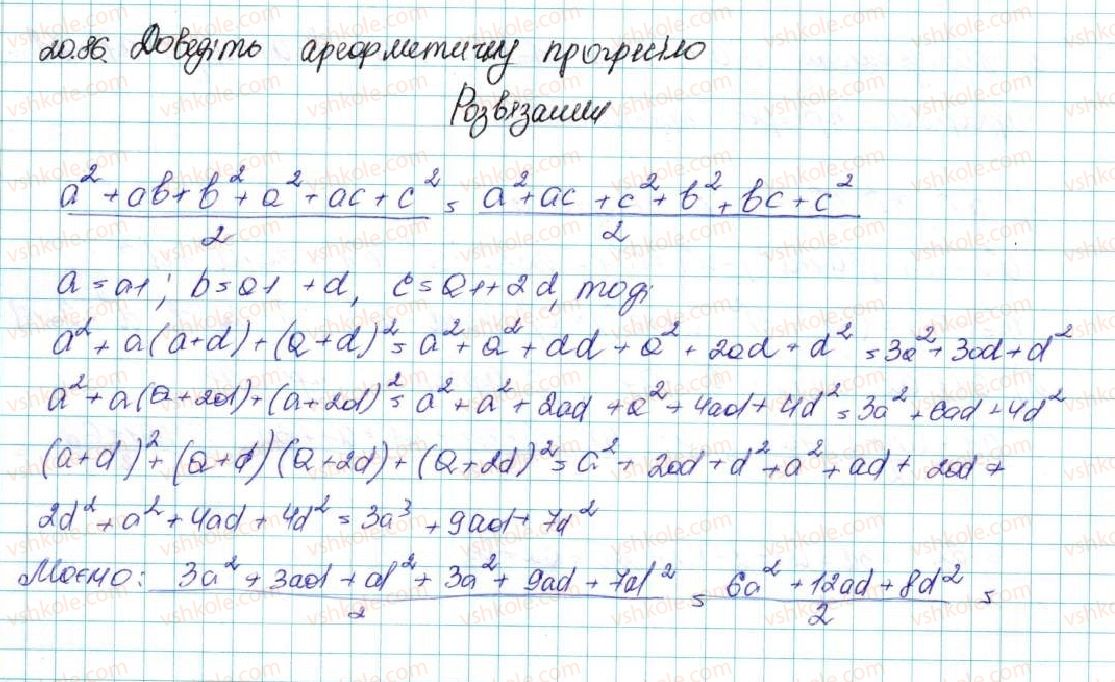 20.86. Доведіть ареорметичну прогресію
Розв'язання
a² + ab + b² + a² + ac + c² / 2 = a² + ac + c² + b² + bc + c² / 2
a = a1; b = a1 + d, c = a1 + 2d, тоді
a² + a(a+d) + (a+d)² = a² + a² + ad + a² + 2ad + d² = 3a² + 3ad + d²
a² + a(a+2d) + (a+2d)² = a² + a² + 2ad + a² + 4ad + 4d² = 3a² + 6ad + 4d²
(a+d)² + (a+d)(a+2d) + (a+2d)² = a² + 2ad + d² + a² + ad + 2ad +
2d² + a² + 4ad + 4d² = 3a³ + 9ad + 7d²
Маємо: 3a² + 3ad + d² + 3a² + 9ad + 7d² / 2 = 6a² + 12ad + 8d² / 2 =